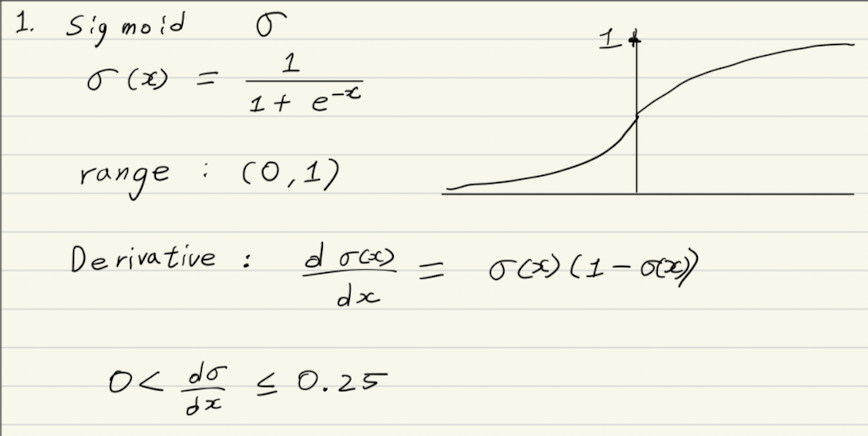 1. Sigmoid σ
σ(x) = 1 / (1 + e^-x)
1
range : (0,1)
Derivative : d σ(x) / dx = σ(x)(1 - σ(x))
0 < dσ/dx ≤ 0.25